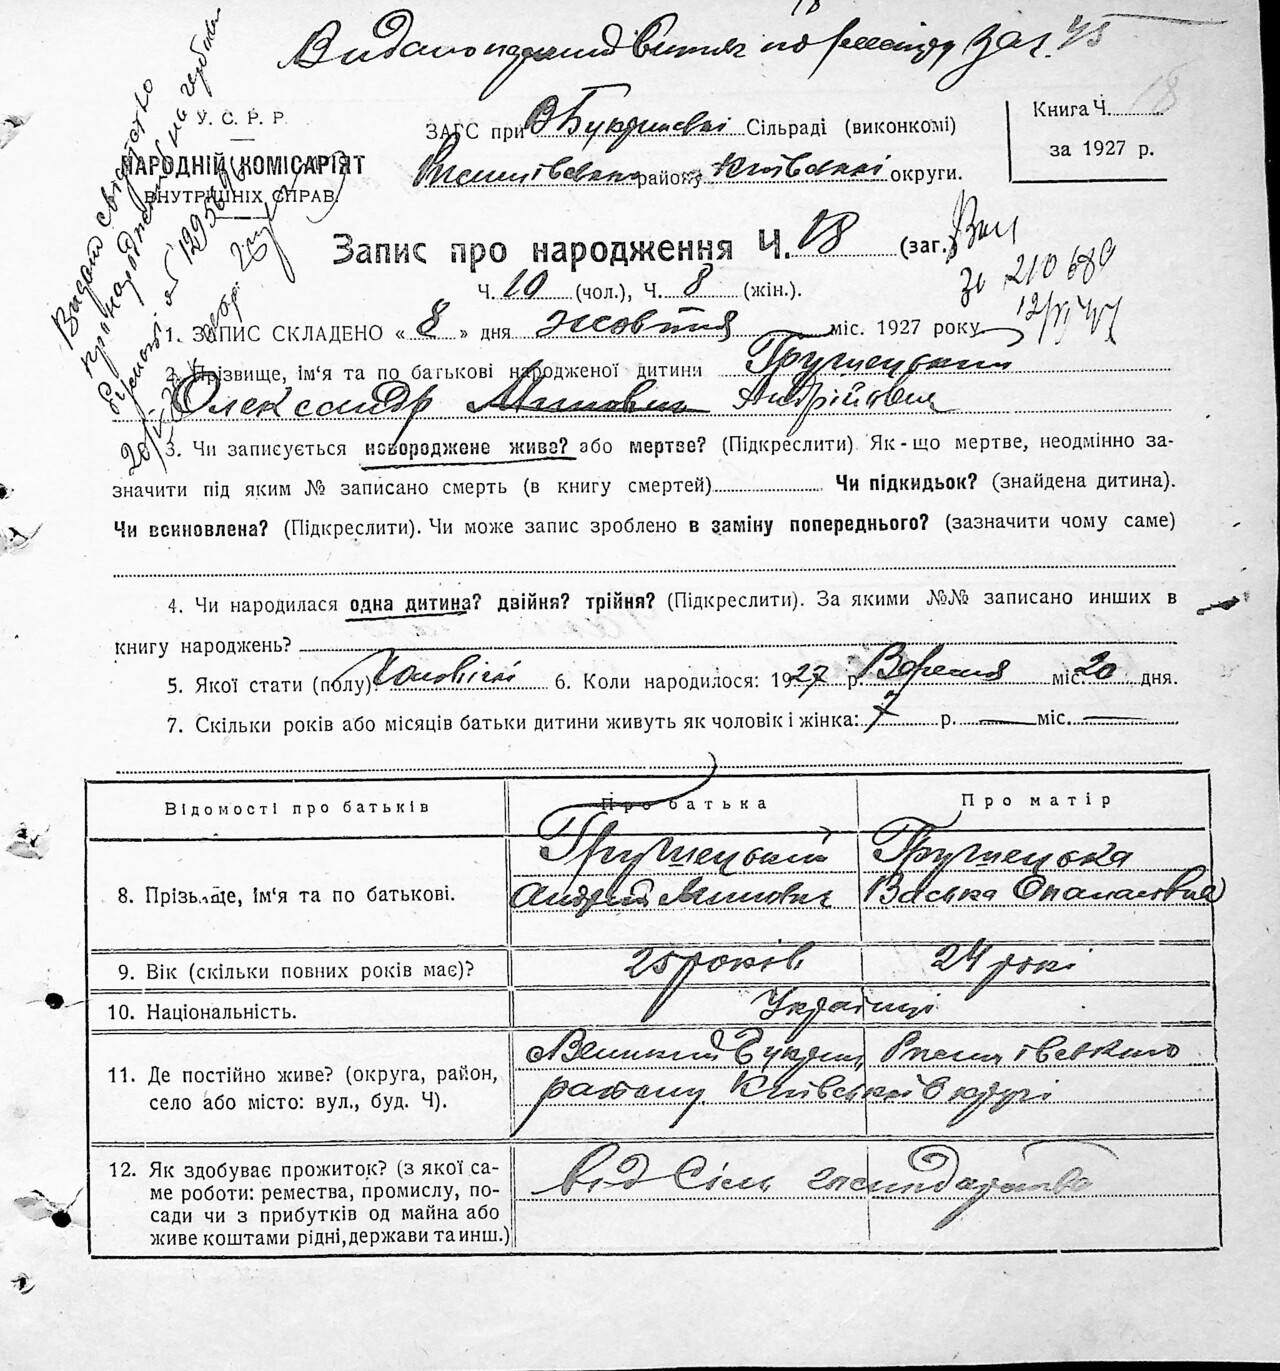 Видано
У. С. Р. Р.
НАРОДНІЙ КОМІСАРІЯТ
ВНУТРІШНІХ СПРАВ.
Видано свідоцтво
про народження
ЗАГС при В Букринські Сільраді (виконкомі)
Ржищівського району Київської округи.
Книга Ч. 18
за 1927 р.
Запис про народження Ч. 18 (заг.)
Ч. 10 (чол.), Ч. 8 (жін.).
210680
1. ЗАПИС СКЛАДЕНО « 8 » дня жовтня міс. 1927 року
2. Прізвище, ім‘я та по батькові народженої дитини Грушецький
Олександр Минович Андрійович
3. Чи записується новороджене живе? або мертве? (Підкреслити). Як-що мертве, неодмінно за-
значити під яким № записано смерть (в книгу смертей) Чи підкидьок? (знайдена дитина).
Чи всиновлена? (Підкреслити). Чи може запис зроблено в заміну попереднього? (зазначити чому саме)
4. Чи народилася одна дитина? двійня? трійня? (Підкреслити). За якими №№ записано инших в
книгу народжень?
5. Якої стати (полу) Чоловічої 6. Коли народилося: 1927 р. Вересня міс. 20 дня.
7. Скільки років або місяців батьки дитини живуть як чоловік і жінка: 7 р. — міс. —
Відомості про батьків Про батька Про матір
8. Прізвище, ім‘я та по батькові.
Грушецький Грушецька
Андрій Минович Васька Опанасовна
9. Вік (скільки повних років має)? 25 років 24 рокі
10. Національність. Українці
11. Де постійно живе? (округа, район,
село або місто: вул., буд. Ч).
Великий Букрин, Ржищівського
району Київської округі
12. Як здобуває прожиток? (з якої са-
ме роботи: ремества, промислу, по-
сади чи з прибутків од майна або
живе коштами рідні, держави та инш.)
від Сільк господарства